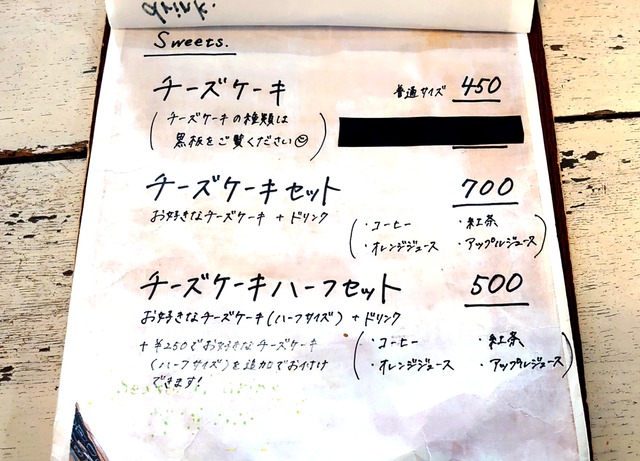 drink.
Sweets.
チーズケーキ 普通サイズ 450
(チーズケーキの種類は
黒板をご覧ください☺)
チーズケーキセット 700
お好きなチーズケーキ + ドリンク
(・コーヒー ・紅茶
・オレンジジュース ・アップルジュース)
チーズケーキハーフセット 500
お好きなチーズケーキ(ハーフサイズ) + ドリンク
(・コーヒー ・紅茶
・オレンジジュース ・アップルジュース)
+ ¥250でお好きなチーズケーキ
(ハーフサイズ)を追加でお付け
できます!